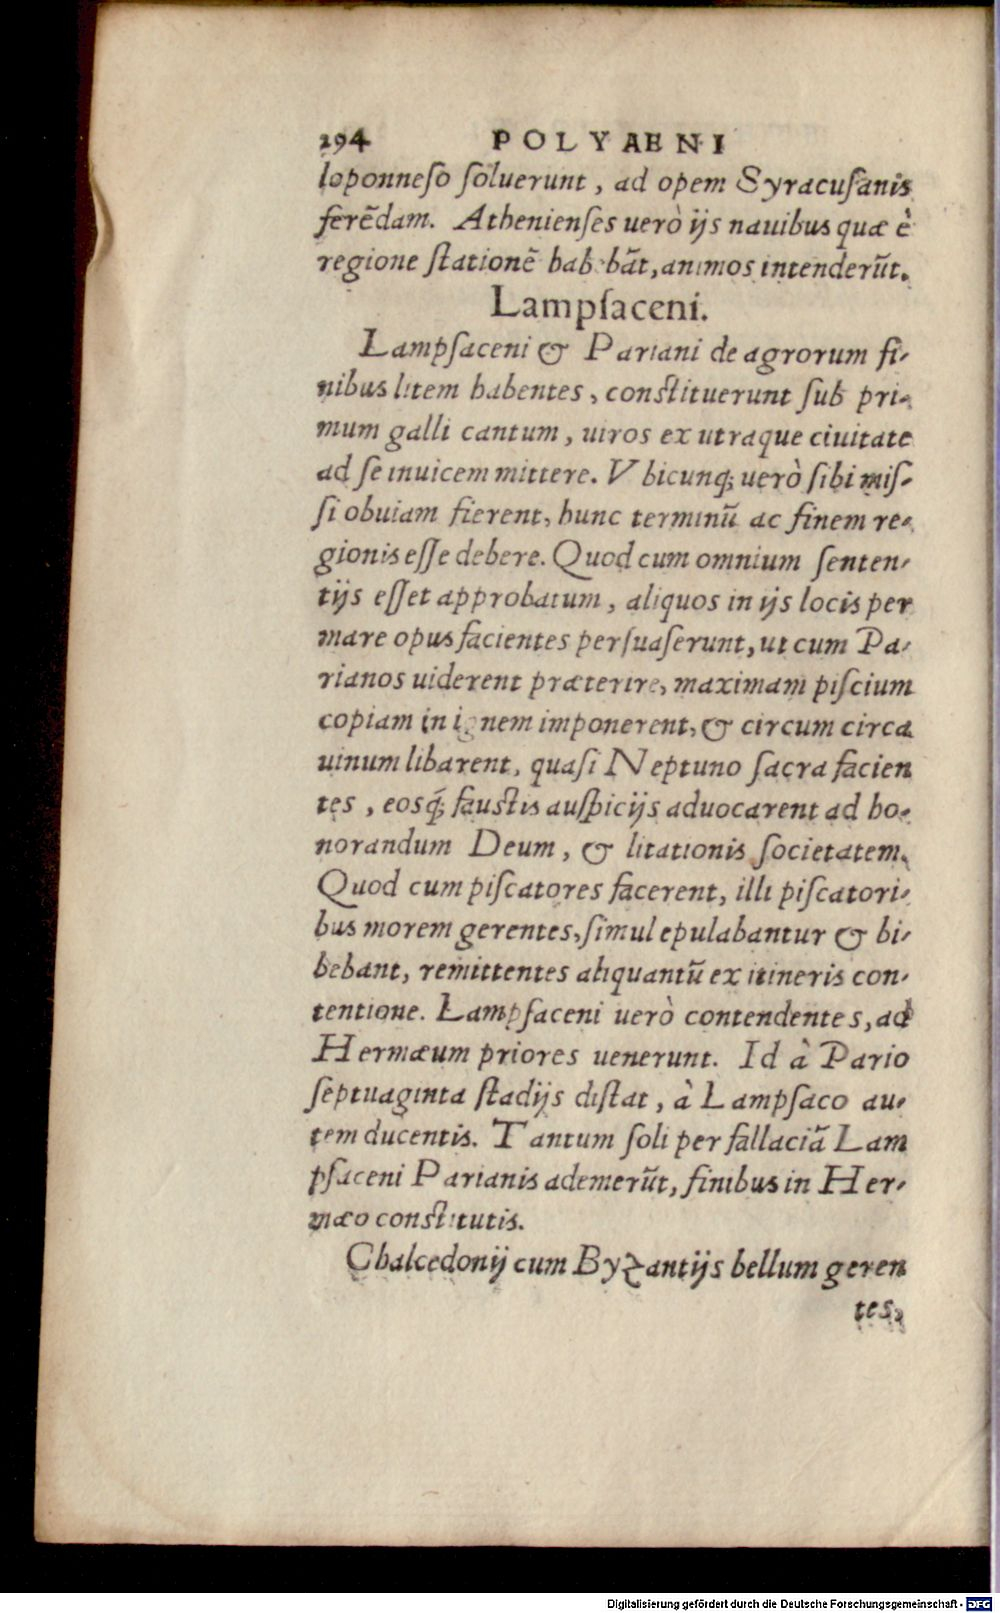 294 POLYAENI
loponneſo ſoluerunt, ad opem Syracuſanis
ferẽdam. Athenienſes uerò ijs nauibus quæ è
regione ſtationẽ habebãt, animos intenderũt.
Lampſaceni.
Lampſaceni & Pariani de agrorum fi-
nibus litem habentes, conſtituerunt ſub pri-
mum galli cantum, uiros ex utraque ciuitate
ad ſe inuicem mittere. Vbicunq; uerò ſibi miſ-
ſi obuiam fierent, hunc terminũ ac finem re-
gionis eſſe debere. Quod cum omnium ſenten-
tijs eſſet approbatum, aliquos in ijs locis per
mare opus facientes perſuaſerunt, ut cum Pa-
rianos uiderent præterire, maximam piſcium
copiam in ignem imponerent, & circum circa
uinum libarent, quaſi Neptuno ſacra facien
tes, eosq́; fauſtis auſpicijs aduocarent ad ho-
norandum Deum, & litationis ſocietatem.
Quod cum piſcatores facerent, illi piſcatori-
bus morem gerentes, ſimul epulabantur & bi-
bebant, remittentes aliquantũ ex itineris con-
tentione. Lampſaceni uerò contendentes, ad
Hermæum priores uenerunt. Id à Pario
ſeptuaginta ſtadijs diſtat, à Lampſaco au-
tem ducentis. Tantum ſoli per fallaciã Lam
pſaceni Parianis ademerũt, finibus in Her-
mæo conſtitutis.
Chalcedonij cum Byzantijs bellum geren
tes,
Digitalisierung gefördert durch die Deutsche Forschungsgemeinschaft - DFG